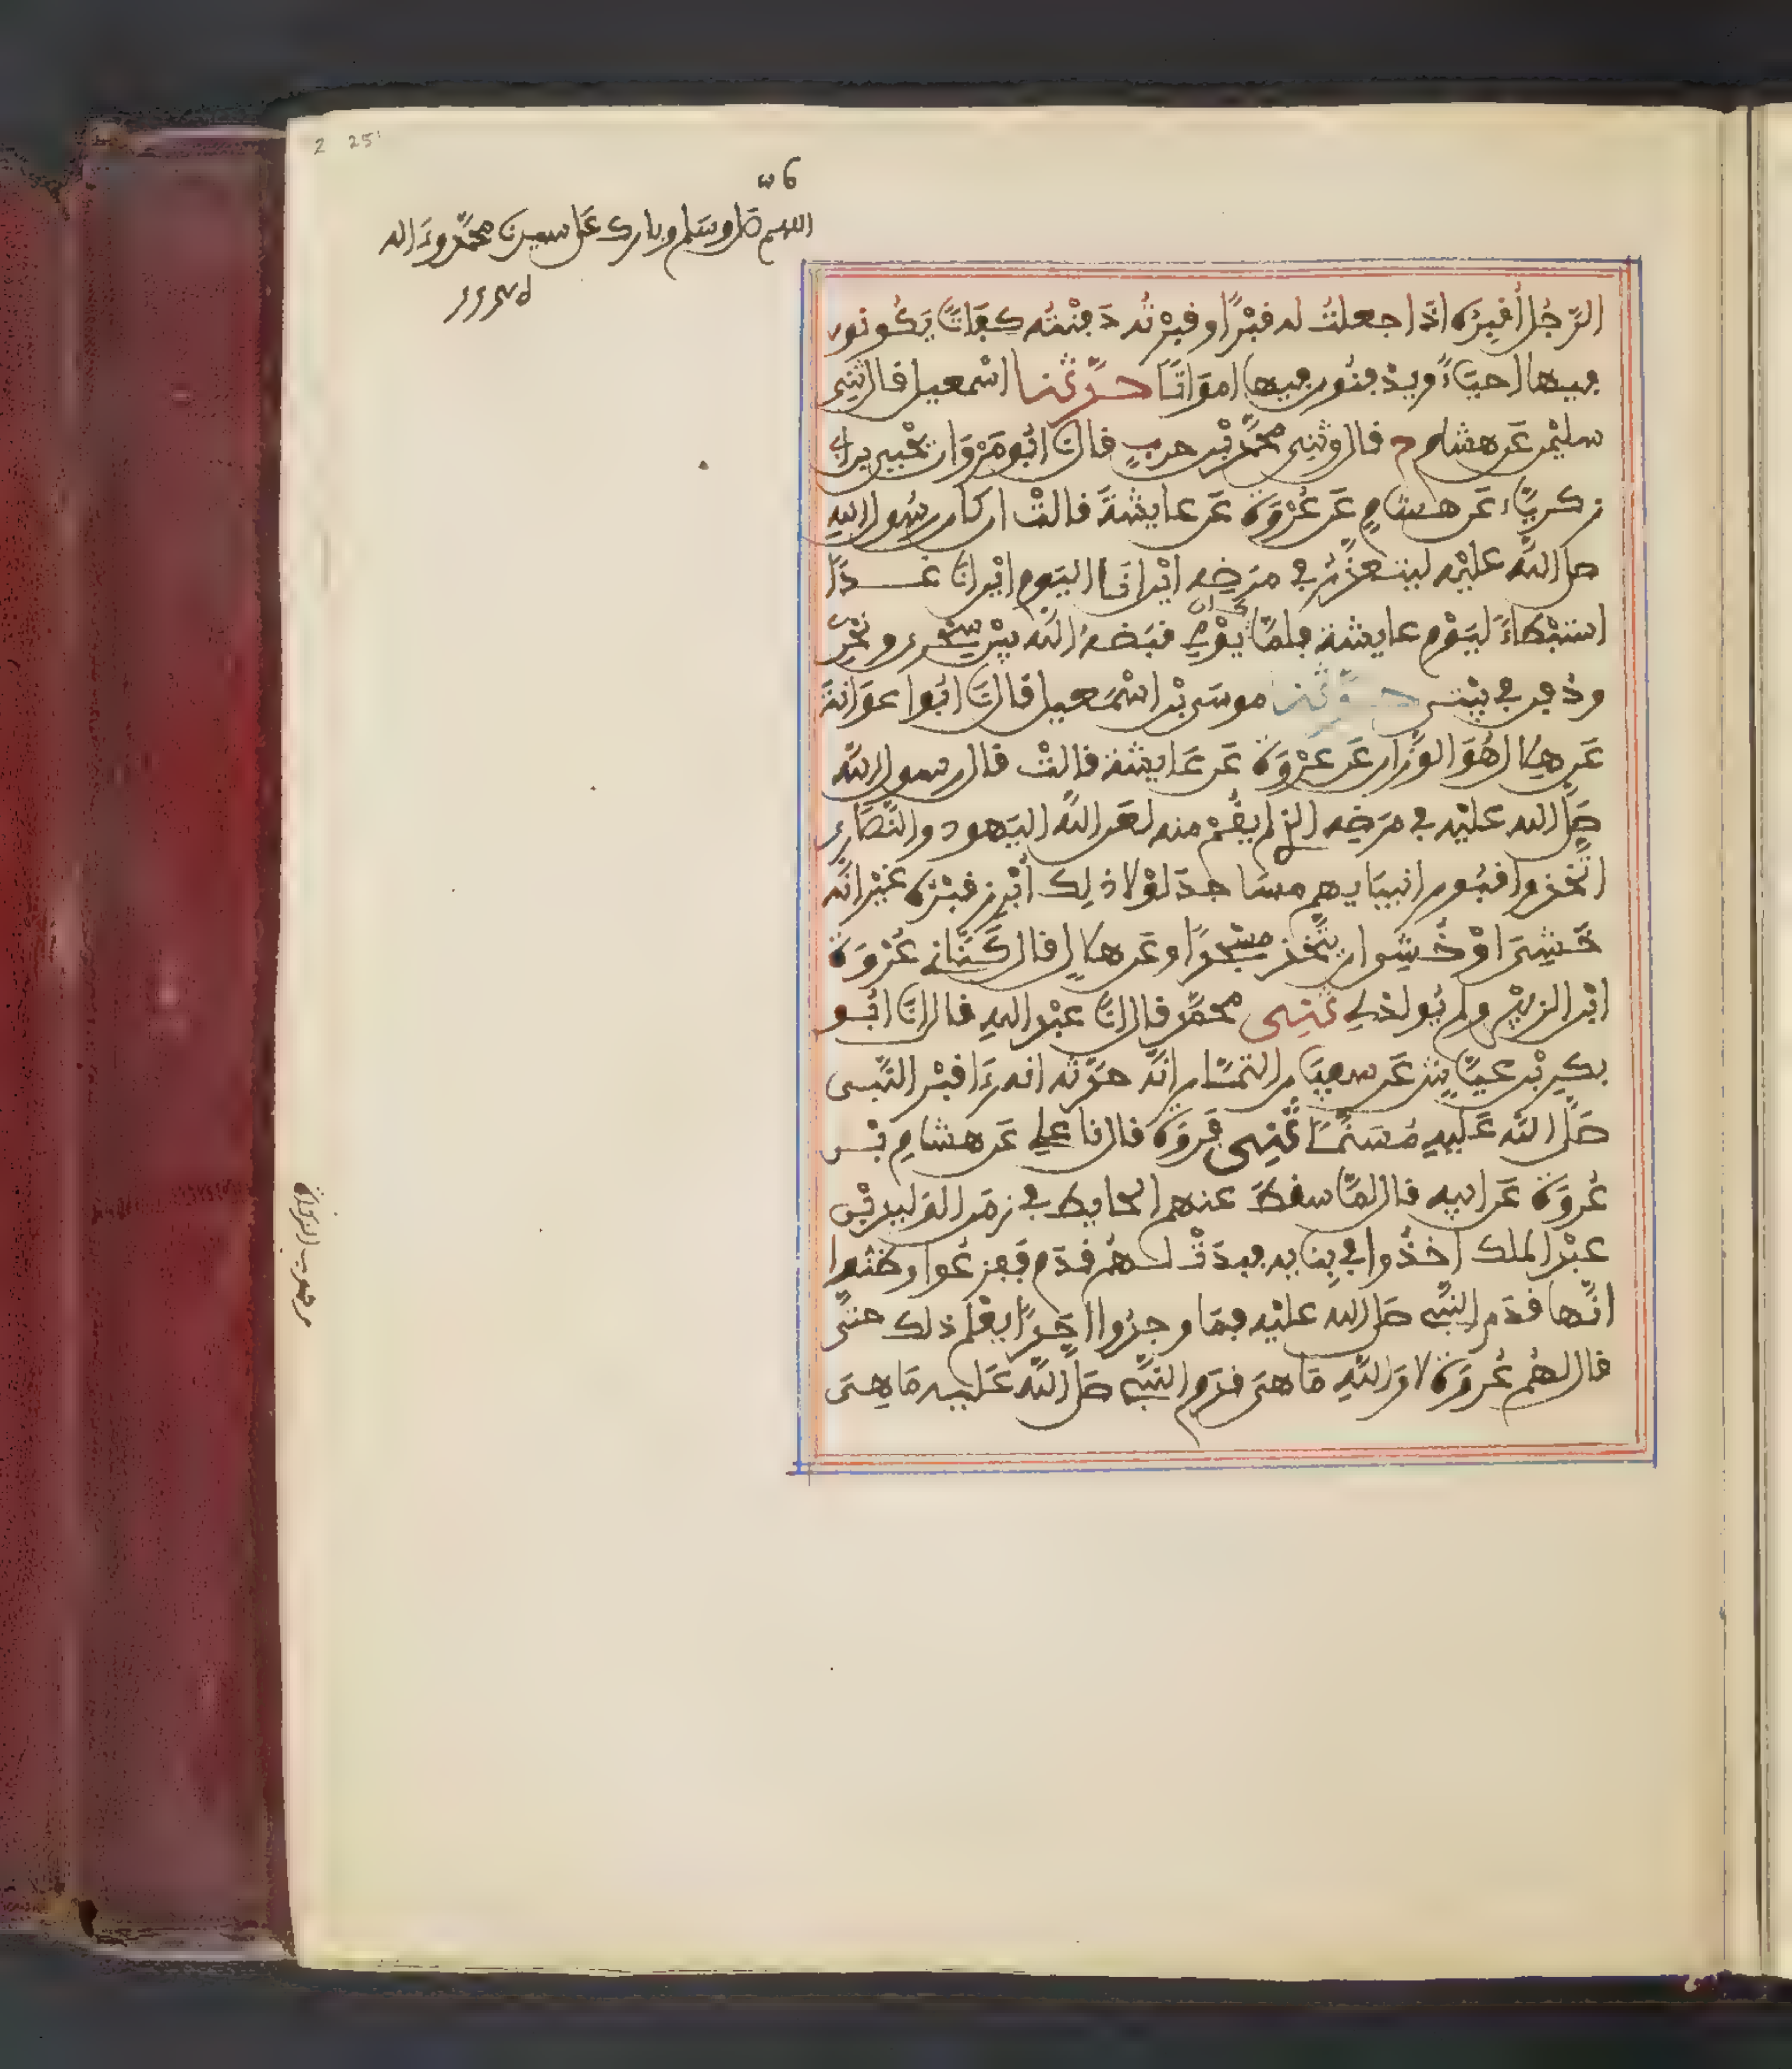 2 25
اللهم صل وسلم وبارك على سيدنا محمد وءاله
الرَّجُل أُقبِرُه اذا جعلتُ له قبْرًا وقبرْتُه دَفنْتُه كفَاتًا يَكُونون
فيها احيَاءً ويدْفنُون فيها امواتًا حدَّثنا اسْمعيل قال ثنِى
سليْمن عَن هشام ح قال وثنِى محمَّد بْن حربٍ قال نا ابُو مَرْوَان يحْيى بن ابى
زكريَّاء عَن هشامٍ عَن عُرْوَةَ عَن عايشةَ قالتْ ان كان رسُول اللهِ
صلى اللَّه عليْه ليتعذَّرُ في مرَضِه ايْن انَا اليَوم ايْن انَا غدًا
استبْطاءً ليَوْم عايشة فلمَّا كان يوْمِي قبَضهُ اللَّه بيْن سَحْرِى ونحْرِى
ودُفن في بيْتى حدَّثنا موسَى بْن اسْمَعيل قال نَا ابُوا عوَانةَ
عَن هِلال هُوَ الوَزَّان عَن عرْوَةَ عَن عَايشة قالتْ قال رسول اللَّه
صلَّى الله عليْه في مرَضه الذى لم يقُمْ منه لعَن اللَّه اليَهود والنَّصَارى
اتَّخذوا قبُور انبيَايهم مسَاجدَ لوْلا ذلِك أُبْرِز قبْرُه غيْر انَّه
خَشِىَ اوْ خُشِى ان يتَّخذ مسْجدًا وعَن هلالٍ قال كَنَّانى عُرْوَة
ابْن الزبيْر ولم يُولد لِى ثنِى محمَّد قال انَا عبْد اللهِ قال انَا ابُو
بكرِ بْن عيَّاشٍ عَن سفيَان التمَّار انَّه حدَّثه انه رَءَا قبْر النَّبى
صَلَّى اللَّه عَليهِ مُسَنَّمًا ثنِى فرْوَة قال نا علِى عَن هشامِ بْن
عُروَة عَن ابيه قال لمَّا سقطَ عنهم الحايط في زمَن الوَليد بْن
عبْد الملك اخذُوا في بِنايه فبدَتْ لهُم قدَم ففزعُوا وظنُّوا
انَّها قدَم النَّبِى صلى الله عليْه فمَا وجدُوا احَدًا يعْلم ذلك حتَّى
قال لهُم عُروَة لا وَاللَّهِ مَا هىَ قدَم النَّبِى صلَّى اللَّه عَليه مَا هِىَ